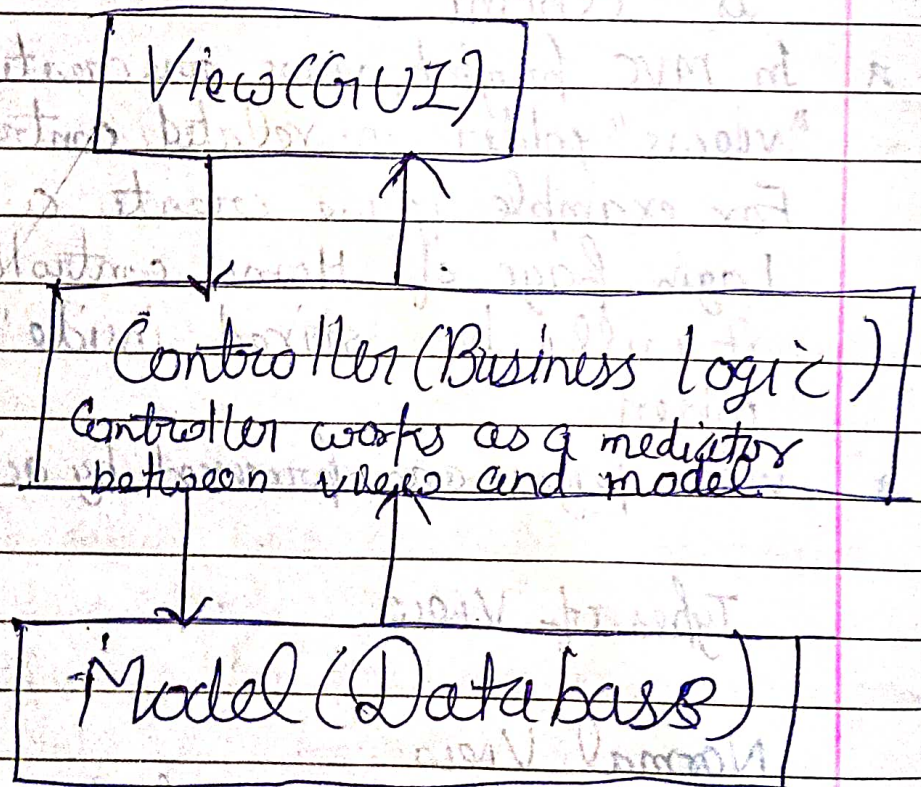 View(GUI)
Controller(Business logic)
Controller works as a mediator
between view and model.
Model(Database)